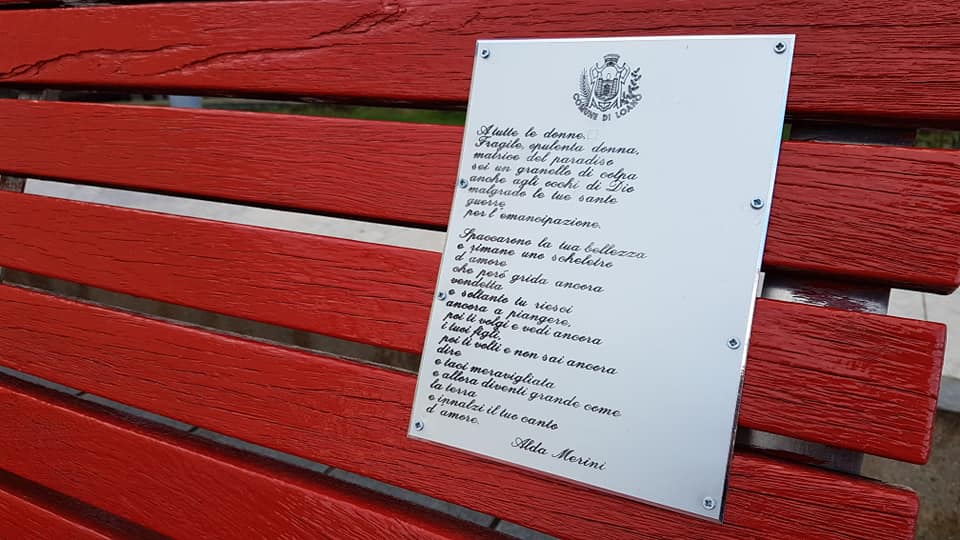 COMUNE DI LOANO
A tutte le donne.
Fragile, opulenta donna,
matrice del paradiso
sei un granello di colpa
anche agli occhi di Dio
malgrado le tue sante
guerre
per l'emancipazione.
Spaccarono la tua bellezza
e rimane uno scheletro
d'amore
che però grida ancora
vendetta
e soltanto tu riesci
ancora a piangere,
poi ti volgi e vedi ancora
i tuoi figli,
poi ti volti e non sai ancora
dire
e taci meravigliata
e allora diventi grande come
la terra
e innalzi il tuo canto
d'amore.
Alda Merini